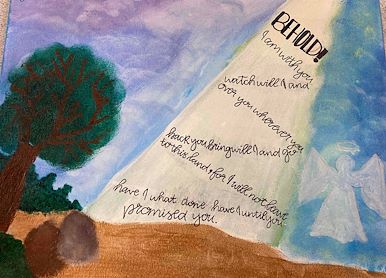 BEHOLD!
I am with you
watch will I and
over you wherever you
back you bring will I and go
to this land, for I will not leave
have I what done have I until you
promised you.